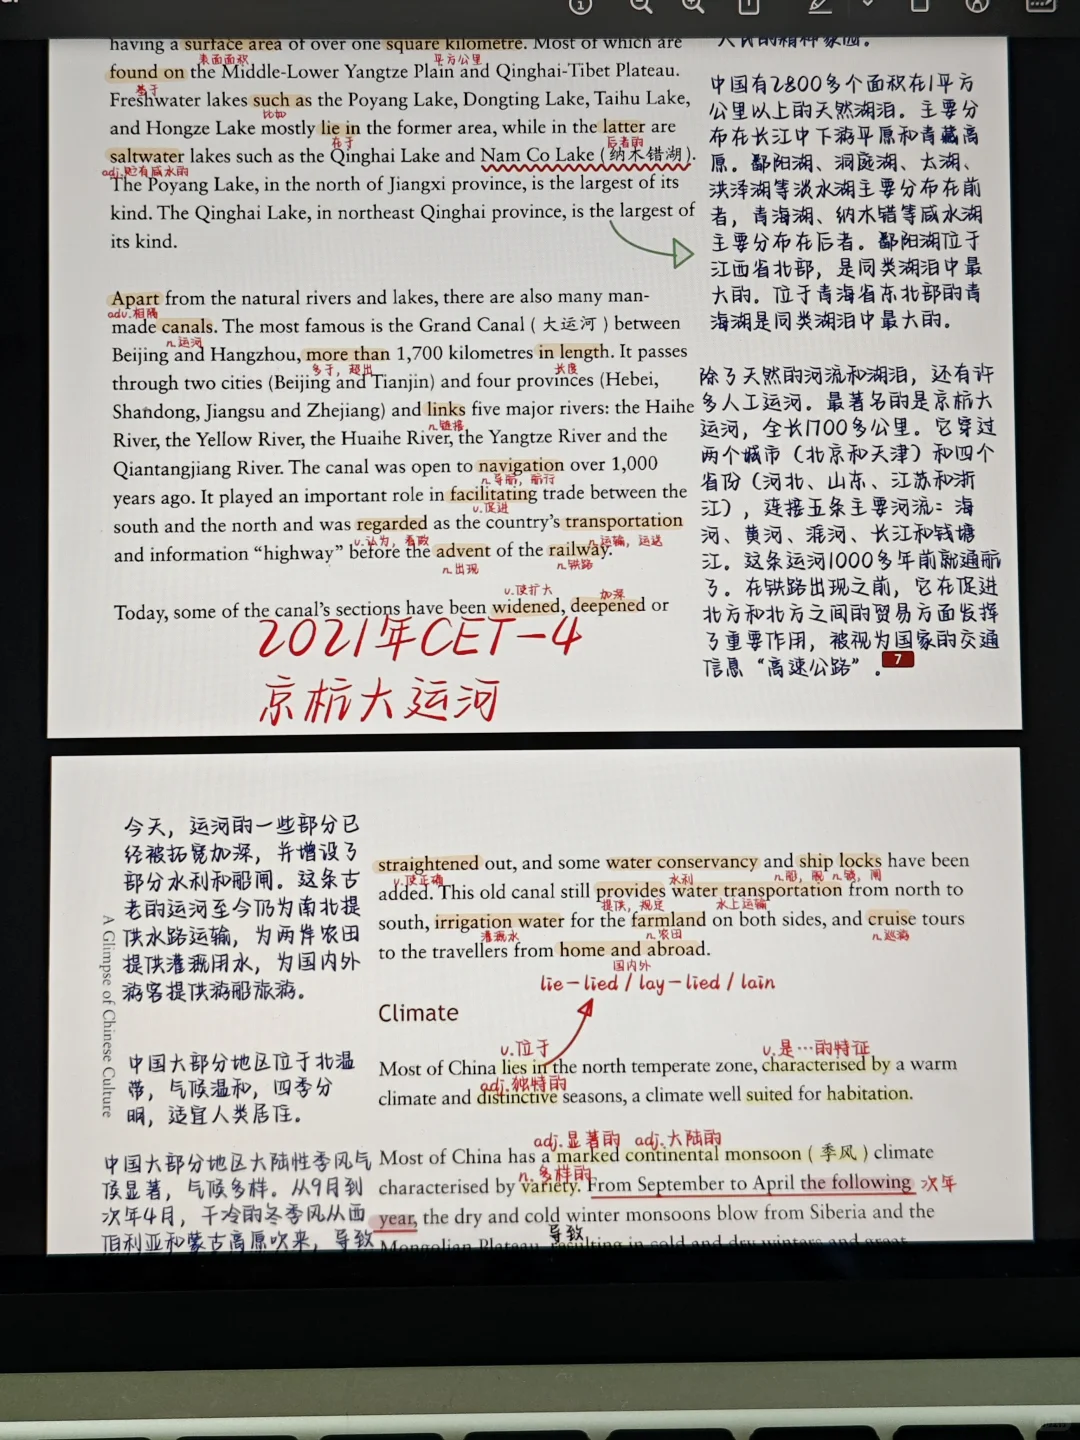 having a surface area of over one square kilometre. Most of which are
表面面积 平方公里
found on the Middle-Lower Yangtze Plain and Qinghai-Tibet Plateau.
基于
Freshwater lakes such as the Poyang Lake, Dongting Lake, Taihu Lake,
比如
and Hongze Lake mostly lie in the former area, while in the latter are
在于 后者的
saltwater lakes such as the Qinghai Lake and Nam Co Lake (纳木错湖).
adj.贮有咸水的
The Poyang Lake, in the north of Jiangxi province, is the largest of its
kind. The Qinghai Lake, in northeast Qinghai province, is the largest of
its kind.
人民的精神家园。
中国有2800多个面积在1平方
公里以上的天然湖泊。主要分
布在长江中下游平原和青藏高
原。鄱阳湖、洞庭湖、太湖、
洪泽湖等淡水湖主要分布在前
者，青海湖、纳木错等咸水湖
主要分布在后者。鄱阳湖位于
江西省北部，是同类湖泊中最
大的。位于青海省东北部的青
海湖是同类湖泊中最大的。
Apart from the natural rivers and lakes, there are also many man-
adv.相隔
made canals. The most famous is the Grand Canal (大运河) between
n.运河
Beijing and Hangzhou, more than 1,700 kilometres in length. It passes
多于，超出 长度
through two cities (Beijing and Tianjin) and four provinces (Hebei,
Shandong, Jiangsu and Zhejiang) and links five major rivers: the Haihe
n.链接
River, the Yellow River, the Huaihe River, the Yangtze River and the
Qiantangjiang River. The canal was open to navigation over 1,000
n.导航，航行
years ago. It played an important role in facilitating trade between the
v.促进
south and the north and was regarded as the country's transportation
v.认为，看做 n.运输，运送
and information "highway" before the advent of the railway.
n.出现 n.铁路
v.使扩大 加深
Today, some of the canal's sections have been widened, deepened or
2021年CET-4
京杭大运河
除了天然的河流和湖泊，还有许
多人工运河。最著名的是京杭大
运河，全长1700多公里。它穿过
两个城市（北京和天津）和四个
省份（河北、山东、江苏和浙
江），连接五条主要河流：海
河、黄河、淮河、长江和钱塘
江。这条运河1000多年前就通航
了。在铁路出现之前，它在促进
北方和北方之间的贸易方面发挥
了重要作用，被视为国家的交通
信息“高速公路”。
7
今天，运河的一些部分已
经被拓宽加深，并增设了
部分水利和船闸。这条古
老的运河至今仍为南北提
供水路运输，为两岸农田
提供灌溉用水，为国内外
游客提供游船旅游。
A Glimpse of Chinese Culture
straightened out, and some water conservancy and ship locks have been
v.使正确 水利 n.船，舰 n.锁，闸
added. This old canal still provides water transportation from north to
提供，规定 水上运输
south, irrigation water for the farmland on both sides, and cruise tours
灌溉水 n.农田 n.巡游
to the travellers from home and abroad.
国内外
lie-lied / lay-lied / lain
Climate
v.位于 v.是…的特征
Most of China lies in the north temperate zone, characterised by a warm
adj.独特的
climate and distinctive seasons, a climate well suited for habitation.
中国大部分地区位于北温
带，气候温和，四季分
明，适宜人类居住。
adj.显著的 adj.大陆的
Most of China has a marked continental monsoon (季风) climate
n.多样的
characterised by variety. From September to April the following 次年
year, the dry and cold winter monsoons blow from Siberia and the
导致
Mongolian Plateau, resulting in cold and dry winters and great
中国大部分地区大陆性季风气
候显著，气候多样。从9月到
次年4月，干冷的冬季风从西
伯利亚和蒙古高原吹来，导致